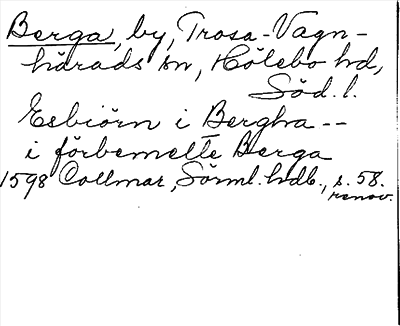 Berga, by, Trosa-Vagn-
härads sn, Hölebo hd,
Söd. l.
Esbiörn i Bergha --
i förbemelte Berga
1598 Collmar, Sörml. hdb., s. 58.
renov.